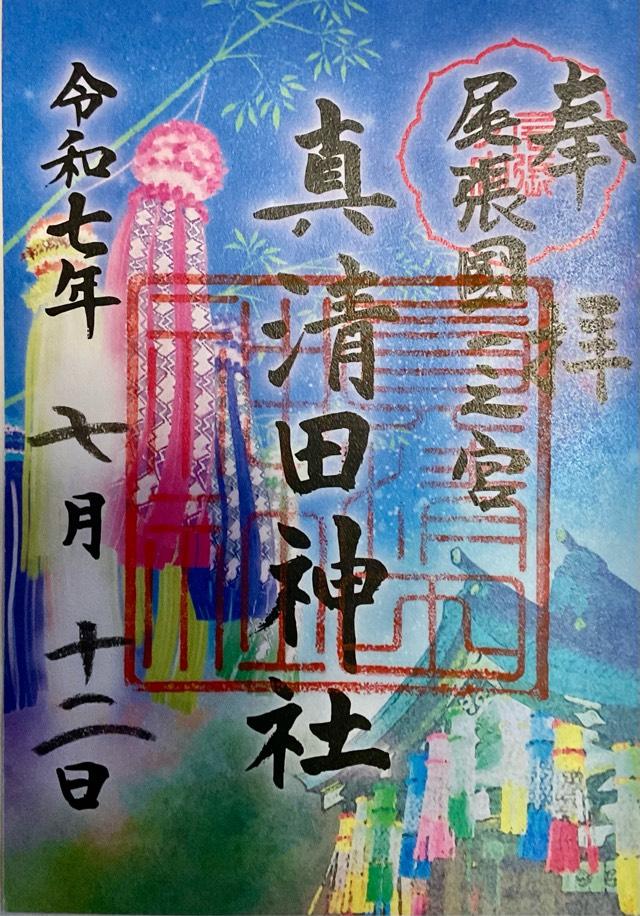 奉拝
尾張國一之宮
真清田神社
令和七年 七月 十二日